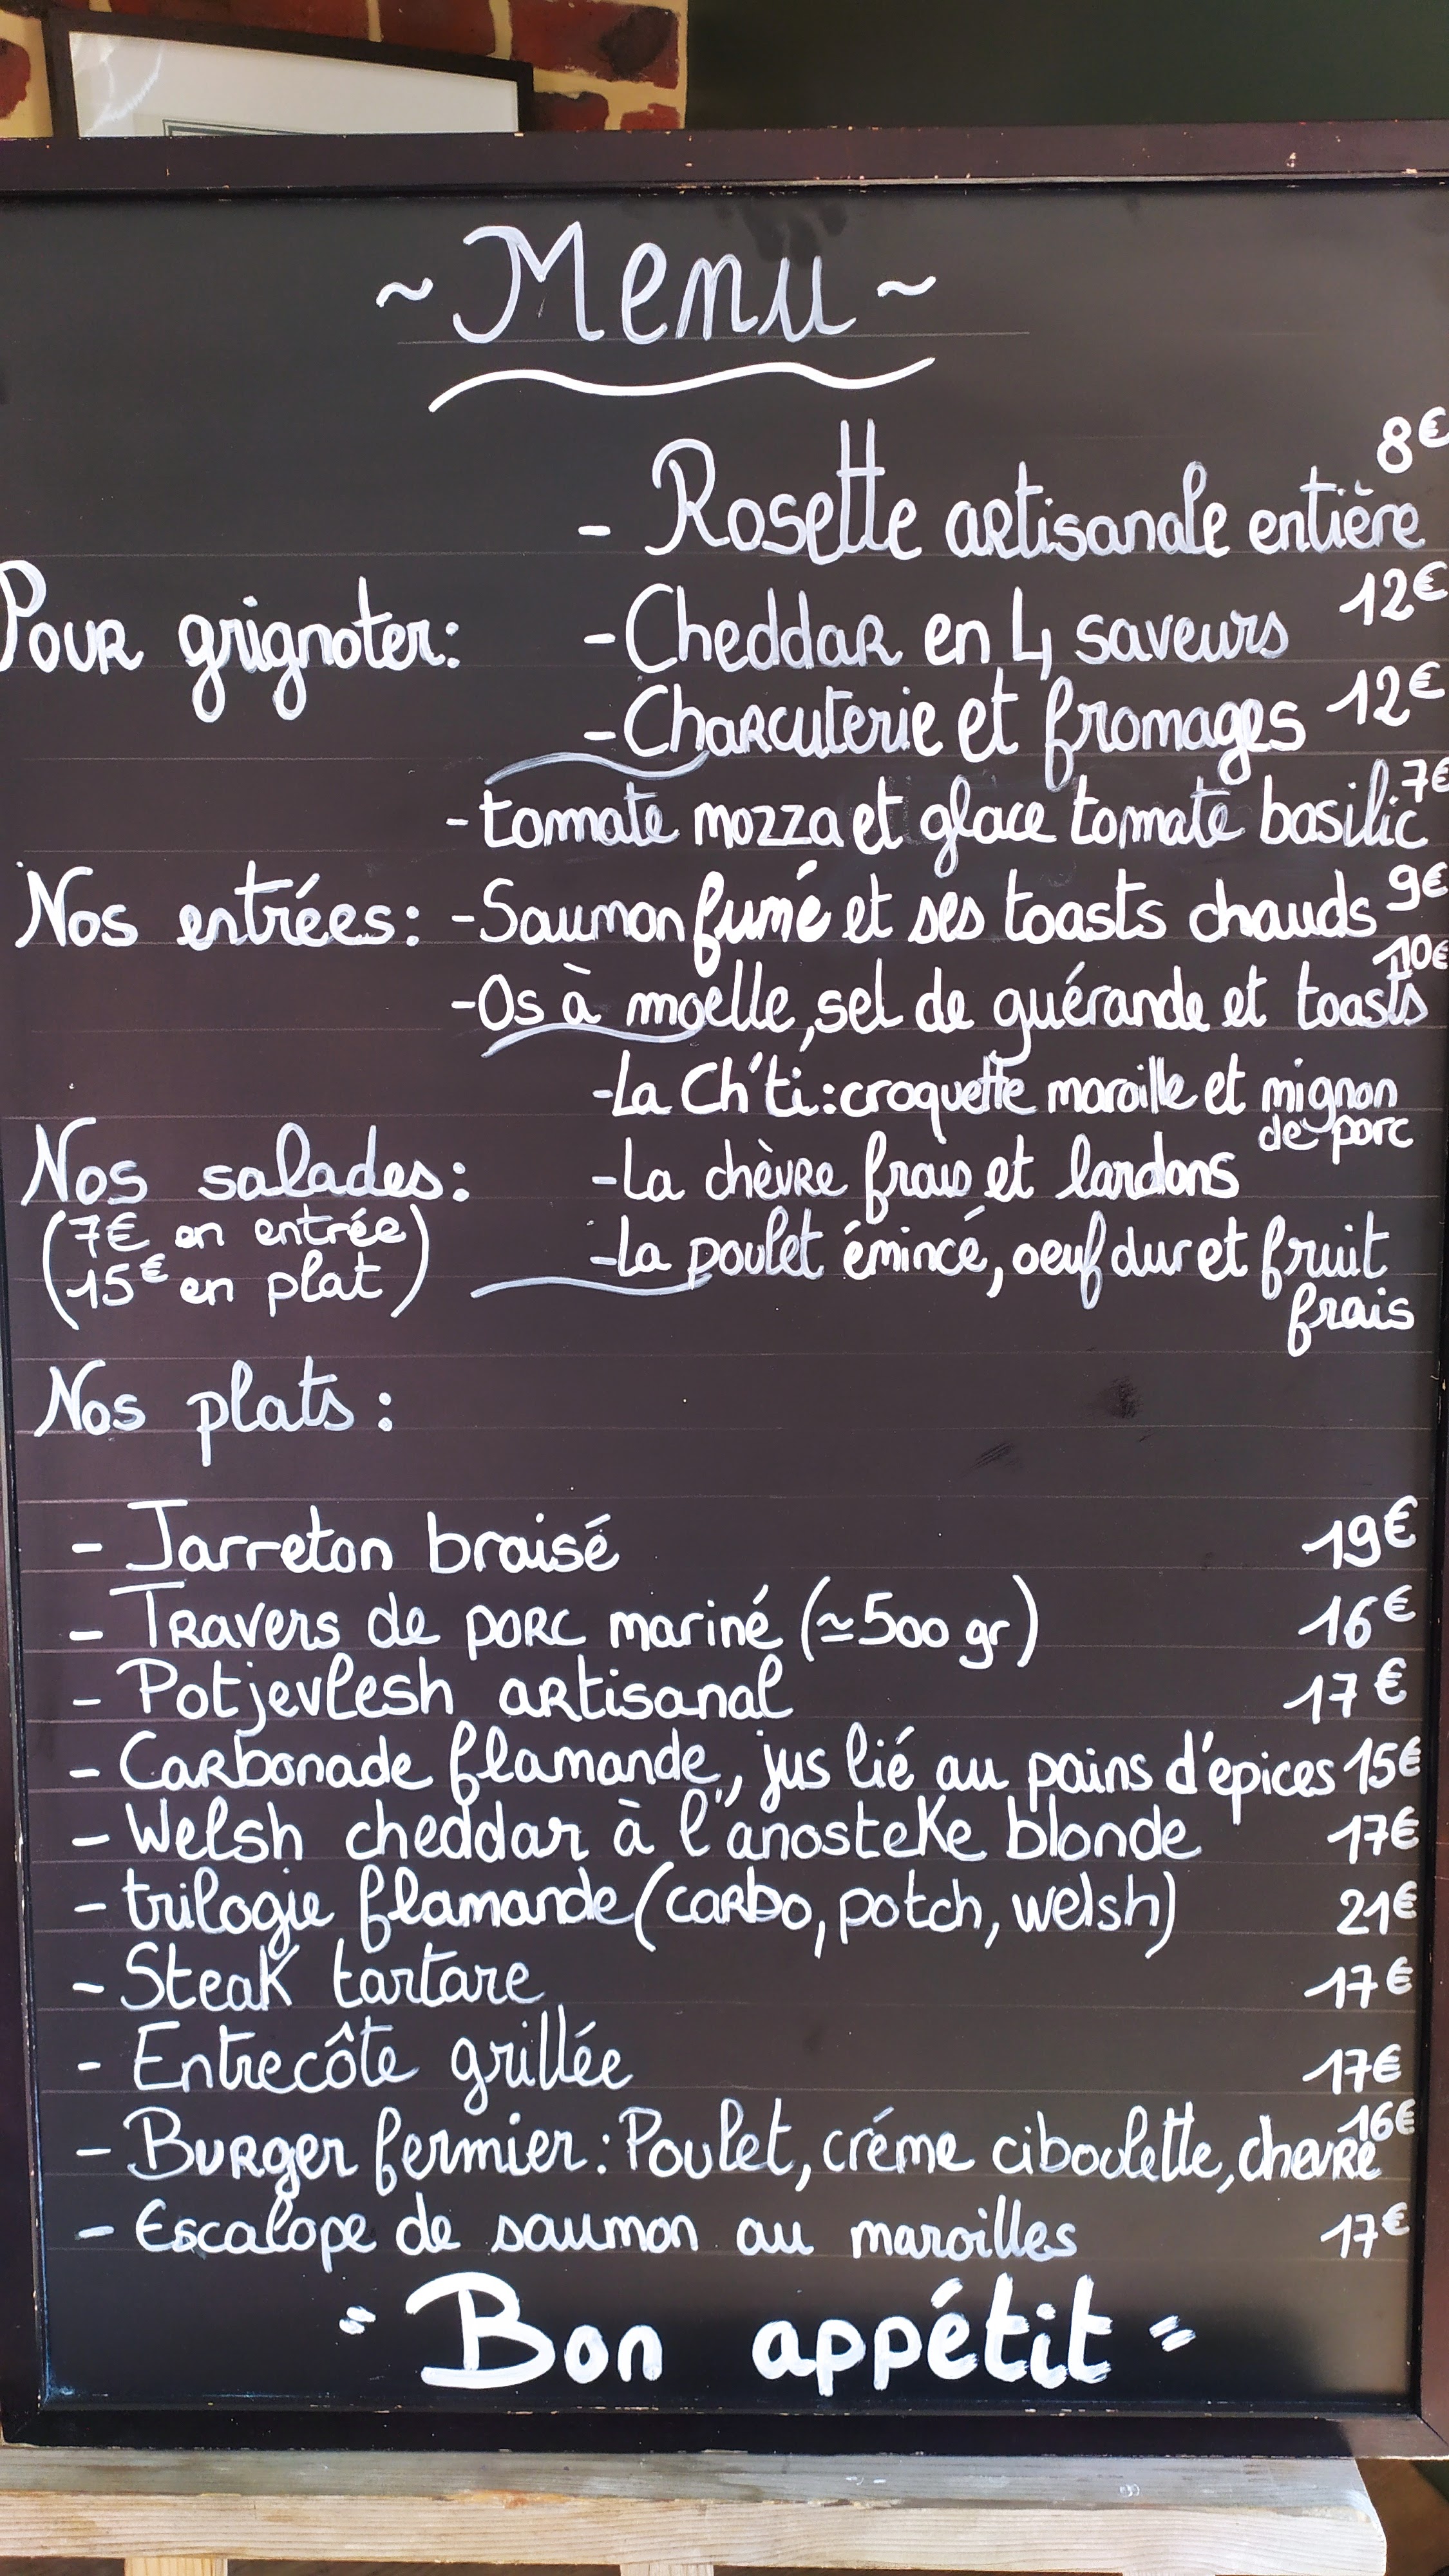 ~ Menu ~
8€
- Rosette artisanale entière
Pour grignoter:
- Cheddar en 4 saveurs 12€
- Charcuterie et fromages 12€
- tomate mozza et glace tomate basilic 7€
Nos entrées:
- Saumon fumé et ses toasts chauds 9€
- Os à moelle, sel de guérande et toasts 10€
- La Ch'ti: croquette maroille et mignon
de porc
Nos salades:
(7€ en entrée
15€ en plat)
- La chèvre frais et lardons
- La poulet émincé, oeuf dur et fruit
frais
Nos plats:
- Jarreton braisé 19€
- Travers de porc mariné (≃500 gr) 16€
- Potjevlesh artisanal 17€
- Carbonade flamande, jus lié au pains d'épices 15€
- Welsh cheddar à l"anosteke blonde 17€
- trilogie flamande (carbo, potch, welsh) 21€
- Steak tartare 17€
- Entrecôte grillée 17€
- Burger fermier: Poulet, créme ciboulette, chevre 16€
- Escalope de saumon au maroilles 17€
" Bon appétit "